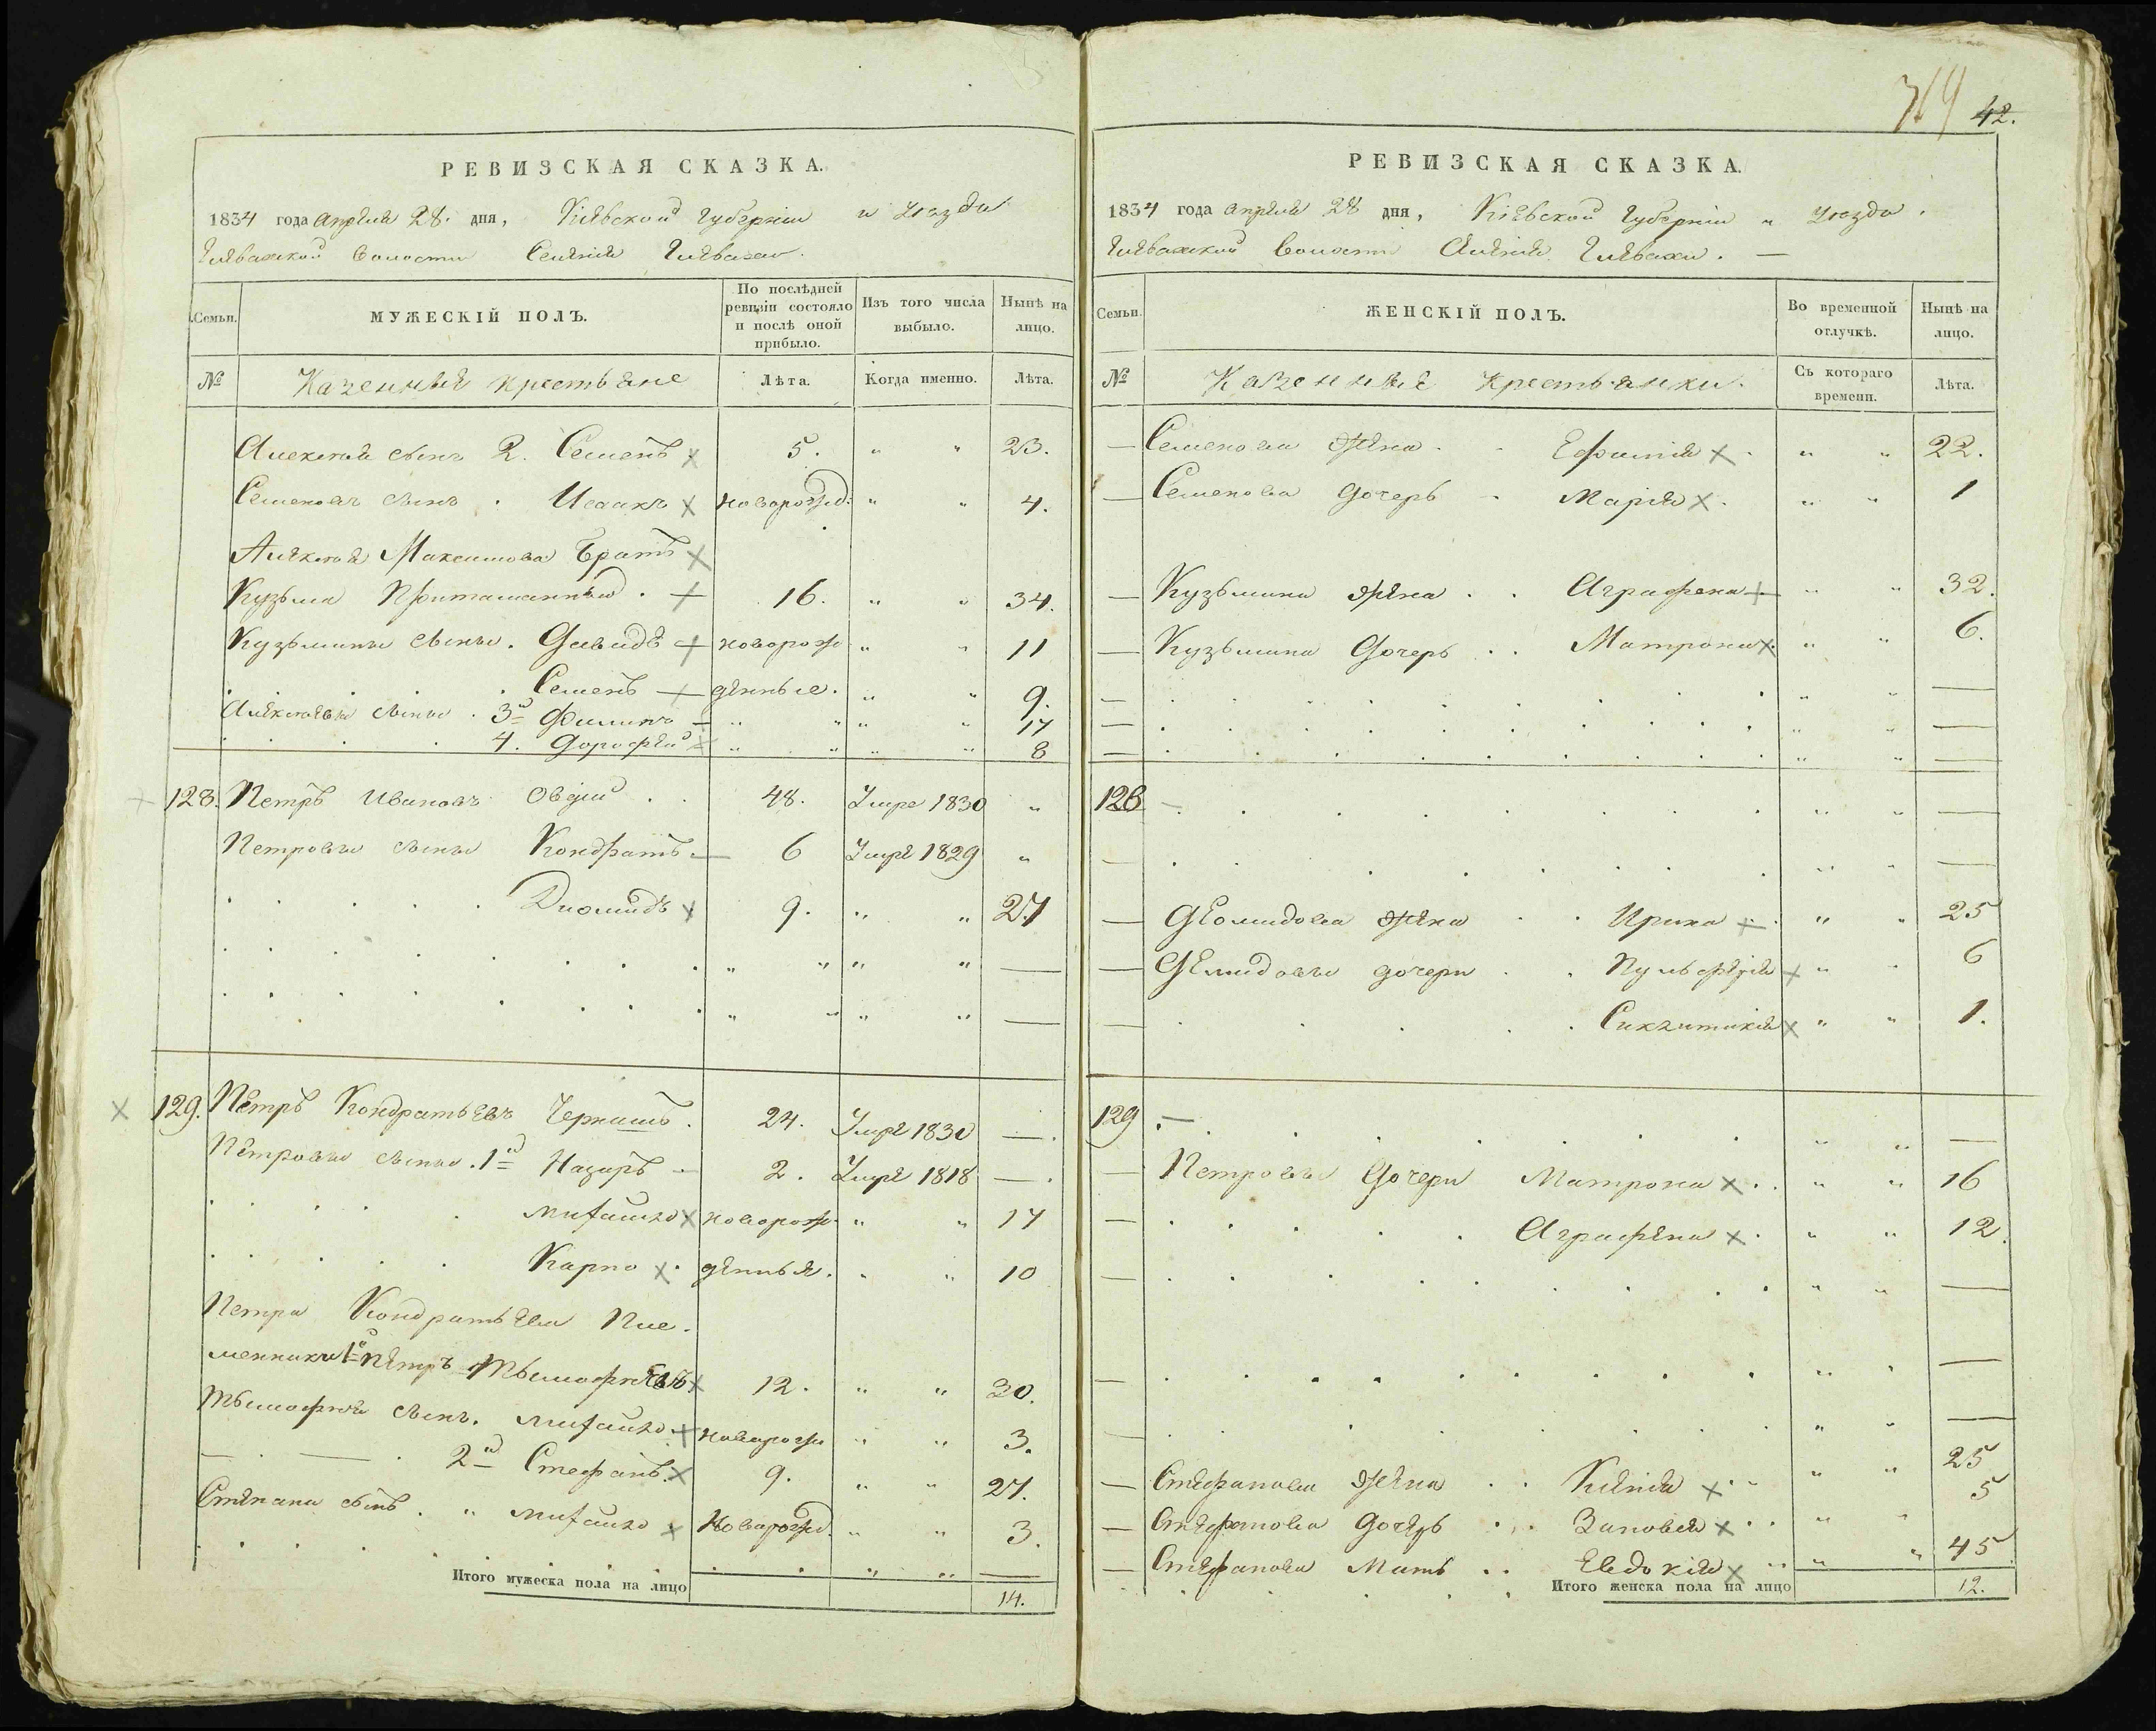 РЕВИЗСКАЯ СКАЗКА.
1834 года Апреля 28. дня, Кіевской губерніи и уезда
волости Селенія
Семьи.
МУЖЕСКІЙ ПОЛЪ.
По послѣдней ревизіи состояло и послѣ оной прибыло.
Изъ того числа выбыло.
Нынѣ на лицо.
№ Казенные крестьяне Лѣта. Когда именно. Лѣта.
сынъ 2. Семенъ 5. " " 23.
Семеновъ сынъ . Исаакъ новорожд. " " 4.
Максимова братъ
Кузьма 16. " " 34.
Кузьмины сыны . Давидъ новорож " " 11
Семенъ денные. " " 9.
сыны . 3й Филипъ " " " " 17
4. Дорофей " " " " 8
128. Петръ Ивановъ 48. Умре 1830 "
Петровы сыны Кондратъ 6 Умре 1829 "
Диомидъ 9. " " 27
" " " " —
" " " " —
129. Петръ Кондратьевъ 24. Умре 1830 —
Петровы сыны . 1й Назаръ 2. Умре 1818 —
Михайло новорож " " 17
Карпо денные. " " 10
Петра Кондратьева Пле.
менники 1й Петръ 12. " " 30.
сынъ. Михайло новорож " " 3.
2й Стефанъ. 9. " " 27.
Степана сынъ . " Михайло Новорожд. " " 3.
" " —
Итого мужеска пола на лицо 14.
42.
РЕВИЗСКАЯ СКАЗКА.
1834 года апреля 28 дня, Кіевской Губерніи и уезда.
Волости Селенія
Семьи.
ЖЕНСКІЙ ПОЛЪ.
Во временной отлучкѣ.
Нынѣ на лицо.
№ Казенные крестьянки. Съ котораго времени. Лѣта.
— Семенова жена Ефимія " " 22.
— Семенова дочерь Марія " " 1
— Кузьмина жена . . Аграфена " " 32.
— Кузьмина дочерь . . Матрона " " 6.
— " " —
— " " —
— " " —
128 — " " —
— " " —
— жена Ирина " " 25
— дочери " 6
— " " 1.
129 — " " —
— Петровы дочери Матрона " " 16
— Аграфена " " 12.
— " " —
— " " —
— " " —
— Стефанова жена . . Ксенія " " 25
— Стефанова дочерь . . " " 5
— Стефанова Мать . . Евдокія " " 45
Итого женска пола на лицо 12.